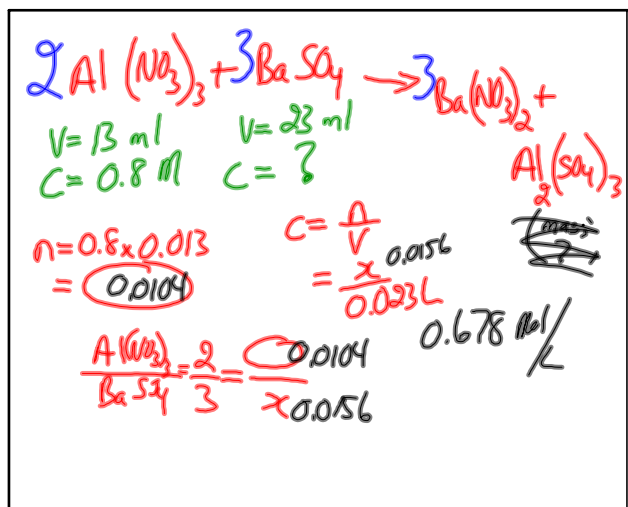 2Al(NO3)3 + 3BaSO4 → 3Ba(NO3)2 +
Al2(SO4)3
V=13 ml
C=0.8 M
V=23 ml
C=?
n=0.8x0.013
= 0.0104
C=n/V
= x/0.023L
0.0156
mass
?
0.678 mol/L
Al(NO3)3/BaSO4 = 2/3 = 0.0104/x 0.0156